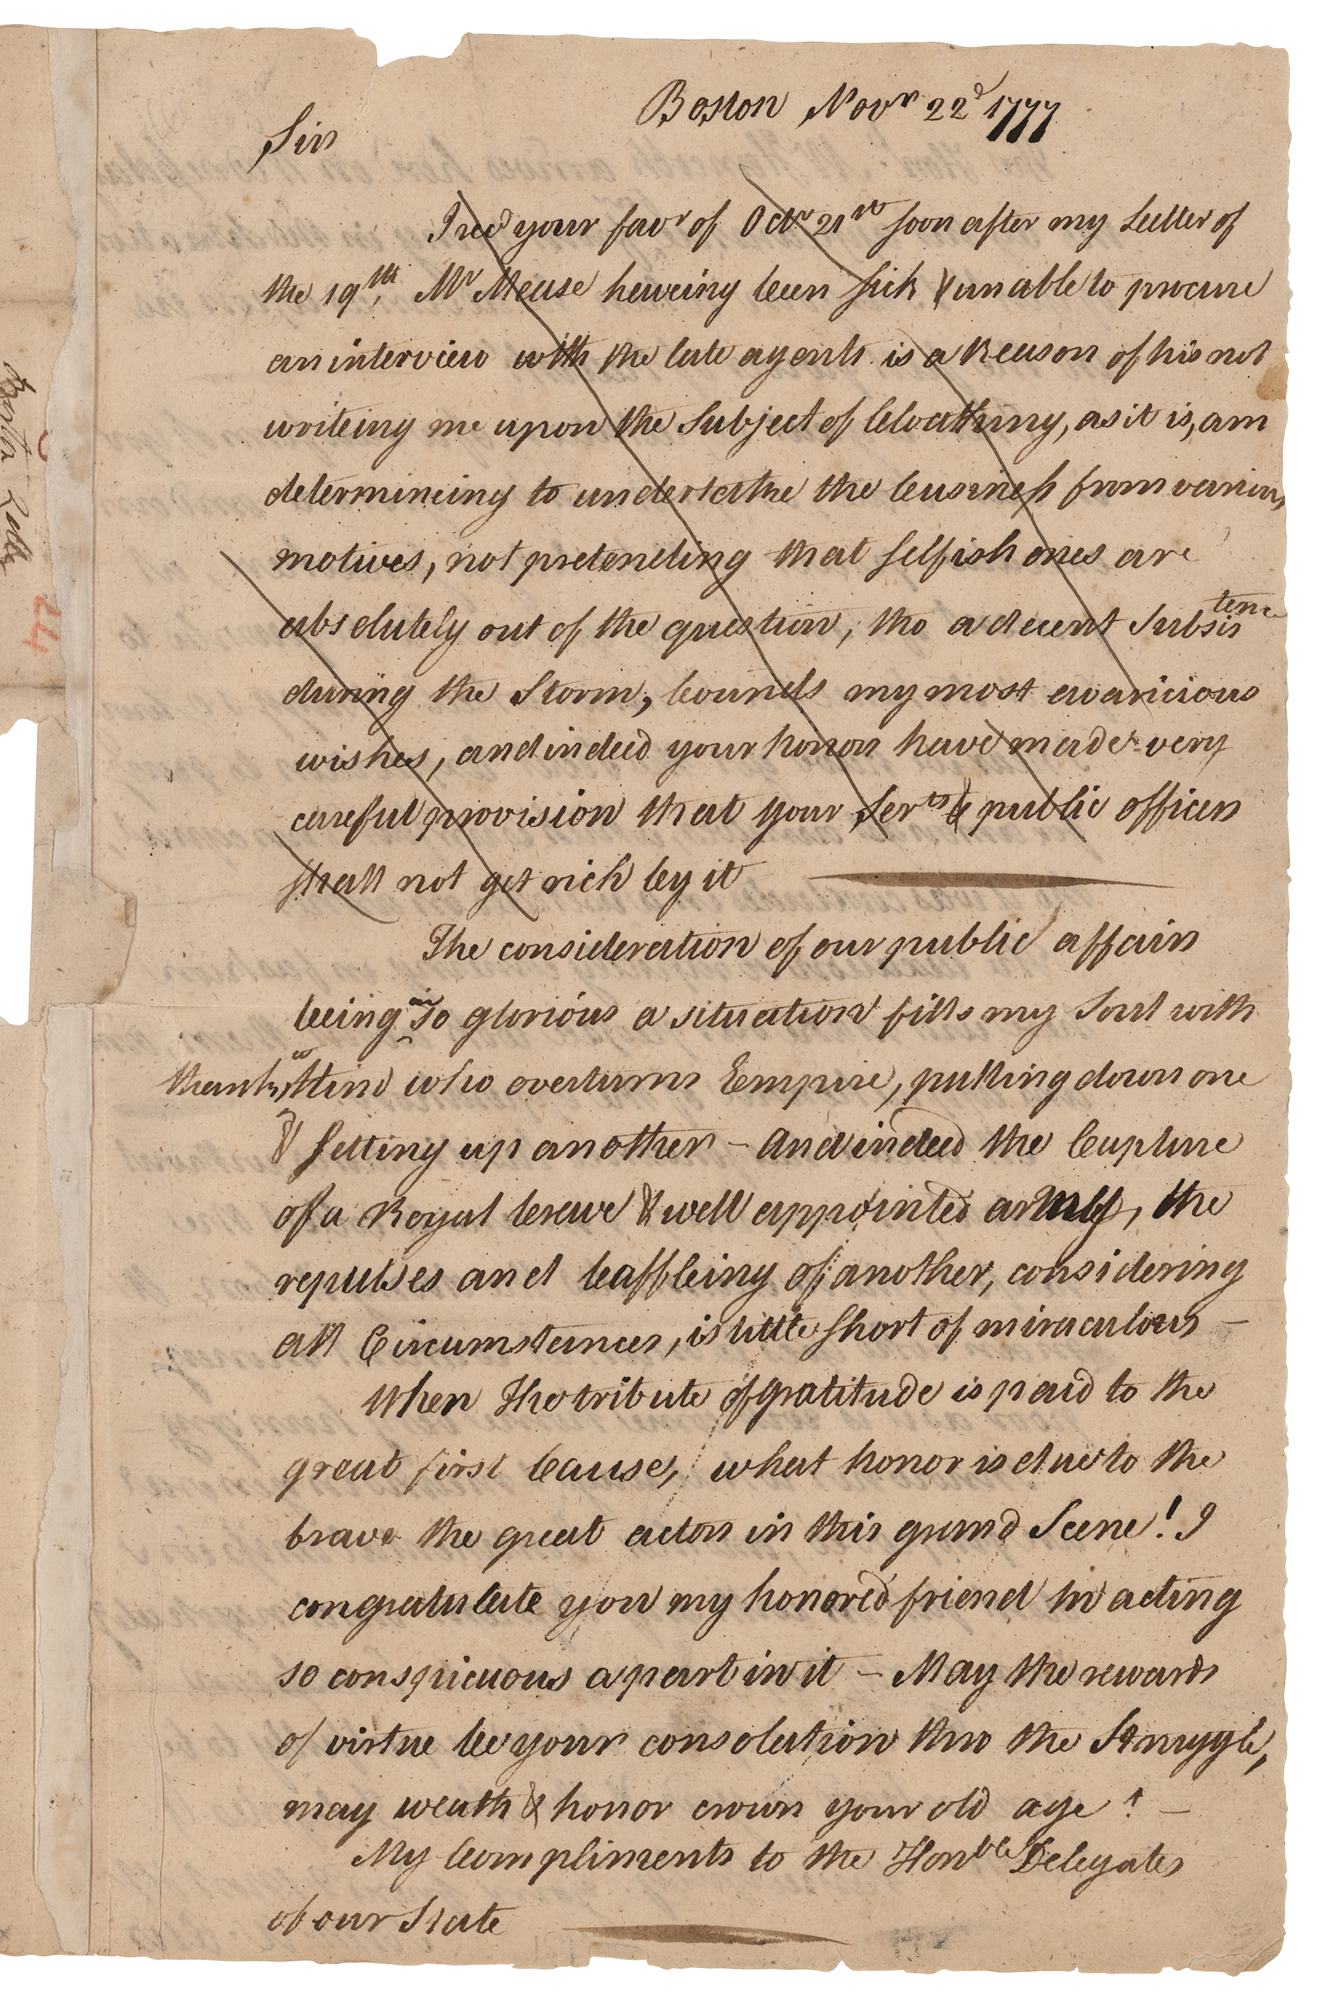 Boston Novr 22d 1777
Sir
I recd your favr of Octr 21st soon after my Letter of
the 19th, Mr Mease haveing been sick & unable to procure
an interview with the late agents is a Reason of his not
writeing me upon the Subject of Cloathing, as it is, am
determineing to undertake the business from various
motives, not pretending that selfish ones are
absolutely out of the question, tho a decent Subsistence
during the Storm, bounds my most avaricious
wishes, and indeed your honors have made very
careful provision that your Servts & public officers
shall not get rich by it
The consideration of our public affairs
being in so glorious a situation fills my Soul with
thanks to Him who overturns Empire, pulling down one
& setting up another - And indeed the Capture
of a Royal brave & well appointed army, the
repulses and baffleing of another, considering
all Circumstances, is little short of miraculous -
When the tribute of gratitude is paid to the
great first Cause, what honor is due to the
brave the great actors in this grand Scene! I
congratulate you my honored friend in acting
so conspicuous a part in it - May the rewards
of virtue be your consolation thro the Struggle,
may wealth & honor crown your old age! -
My Compliments to the Honble Delegates
of our State